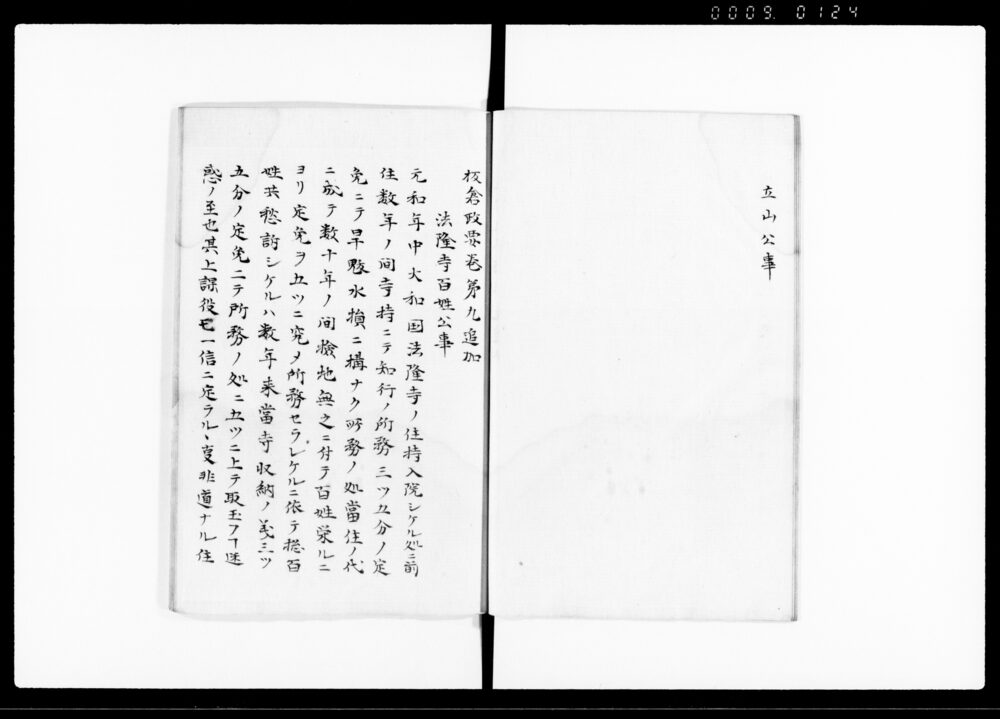 0009. 0124
立山公事
板倉政要巻第九追加
法隆寺百姓公事
元和年中大和国法隆寺ノ住持入院シケル処ニ前
住数年ノ間寺持ニテ知行ノ所務三ツ五分ノ定
免ニテ旱毀水損ニ構ナク所務ノ処當住ノ代
ニ成テ数十年ノ間検地無之ニ付テ百姓栄ルニ
ヨリ定免ヲ五ツニ究メ所務セラレケルニ依テ惣百
姓共愁訴シケルハ数年来當寺収納ノ義三ツ
五分ノ定免ニテ所務ノ処ニ五ツニ上テ取玉フ丁迷
惑ノ至也其上課役モ一信ニ定ラルヽ㕝非道ナル住